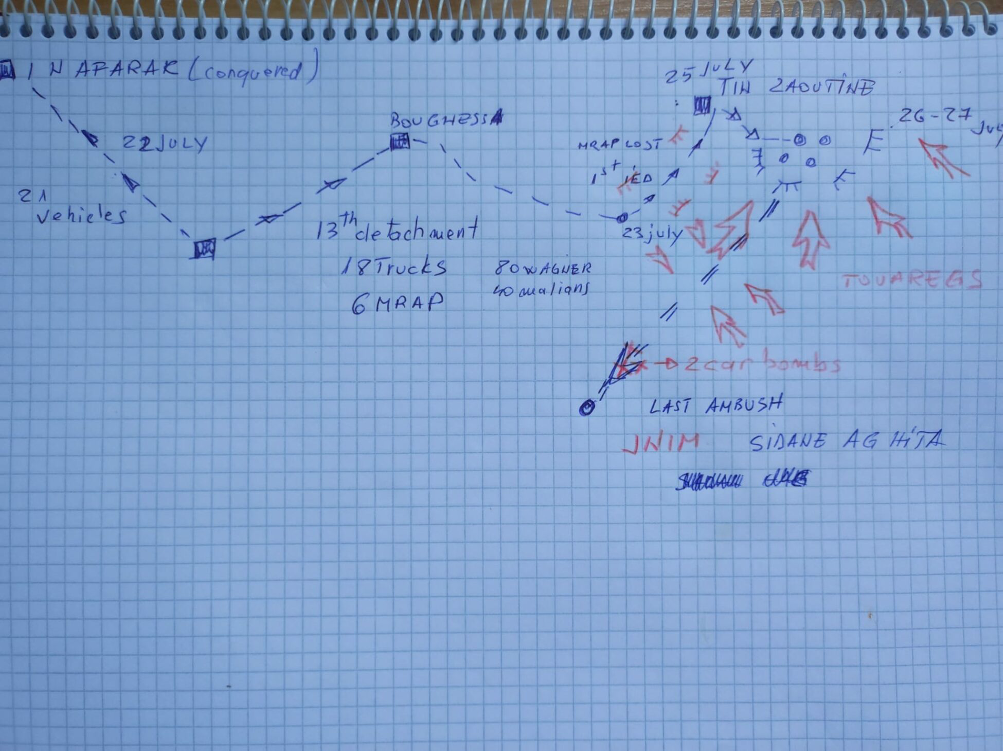 IN AFARAK (conquered)
22 JULY
21
vehicles
BOUGHESSA
13th detachment
18 Trucks
6 MRAP
80 WAGNER
40 malians
25 JULY
TIN ZAOUTINE
MRAP LOST
1st IED
23 july
26-27 July
TOUAREGS
2 car bombs
LAST AMBUSH
JNIM
SIDANE AG HITA